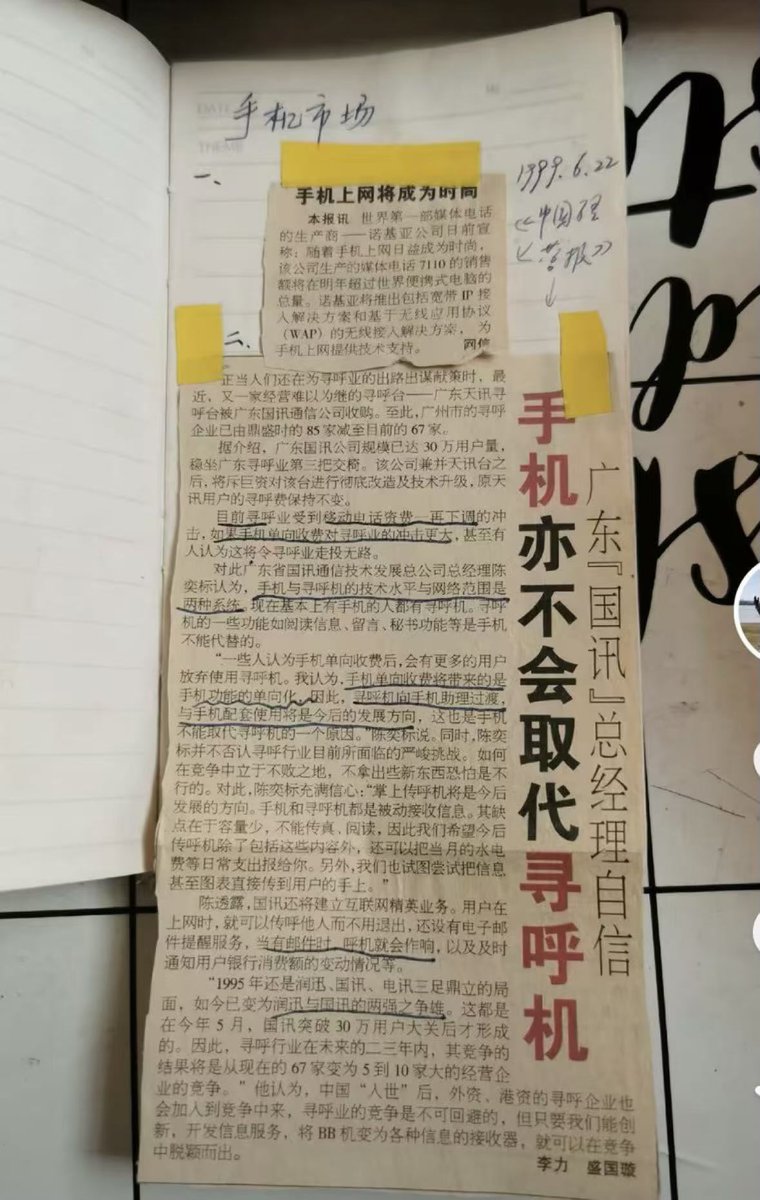 手机市场
一、
1999.6.22
《中国经
营报》
手机上网将成为时尚
本报讯 世界第一部媒体电话
的生产商——诺基亚公司日前宣
称：随着手机上网日益成为时尚，
该公司生产的媒体电话 7110 的销售
额将在明年超过世界便携式电脑的
总量。诺基亚将推出包括宽带 IP 接
入解决方案和基于无线应用协议
（WAP）的无线接入解决方案，为
手机上网提供技术支持。 网信
二、
广东『国讯』总经理自信
手机亦不会取代寻呼机
正当人们还在为寻呼业的出路出谋献策时，最
近，又一家经营难以为继的寻呼台——广东天讯寻
呼台被广东国讯通信公司收购。至此，广州市的寻呼
企业已由鼎盛时的 85 家减至目前的 67 家。
据介绍，广东国讯公司规模已达 30 万用户量，
稳坐广东寻呼业第三把交椅。该公司兼并天讯台之
后，将斥巨资对该台进行彻底改造及技术升级，原天
讯用户的寻呼费保持不变。
目前寻呼业受到移动电话资费一再下调的冲
击，如果手机单向收费对寻呼业的冲击更大，甚至有
人认为这将令寻呼业走投无路。
对此广东省国讯通信技术发展总公司总经理陈
奕标认为，手机与寻呼机的技术水平与网络范围是
两种系统。现在基本上有手机的人都有寻呼机。寻呼
机的一些功能如阅读信息、留言、秘书功能等是手机
不能代替的。
“一些人认为手机单向收费后，会有更多的用户
放弃使用寻呼机。我认为，手机单向收费将带来的是
手机功能的单向化，因此，寻呼机向手机助理过渡，
与手机配套使用将是今后的发展方向，这也是手机
不能取代寻呼机的一个原因。”陈奕标说。同时，陈奕
标并不否认寻呼行业目前所面临的严峻挑战。如何
在竞争中立于不败之地，不拿出些新东西恐怕是不
行的。对此，陈奕标充满信心：“掌上传呼机将是今后
发展的方向。手机和寻呼机都是被动接收信息。其缺
点在于容量少，不能传真、阅读，因此我们希望今后
传呼机除了包括这些内容外，还可以把当月的水电
费等日常支出报给你。另外，我们也试图尝试把信息
甚至图表直接传到用户的手上。”
陈透露，国讯还将建立互联网精英业务。用户在
上网时，就可以传呼他人而不用退出，还设有电子邮
件提醒服务，当有邮件时，呼机就会作响，以及及时
通知用户银行消费额的变动情况等。
“1995年还是润迅、国讯、电讯三足鼎立的局
面，如今已变为润迅与国讯的两强之争雄。这都是
在今年 5 月，国讯突破 30 万用户大关后才形成
的。因此，寻呼行业在未来的二三年内，其竞争的
结果将是从现在的 67 家变为 5 到 10 家大的经营企
业的竞争。”他认为，中国“入世”后，外资、港资的寻呼企业也
会加入到竞争中来，寻呼业的竞争是不可回避的，但只要我们能创
新，开发信息服务，将 BB 机变为各种信息的接收器，就可以在竞争
中脱颖而出。 李力 盛国璇